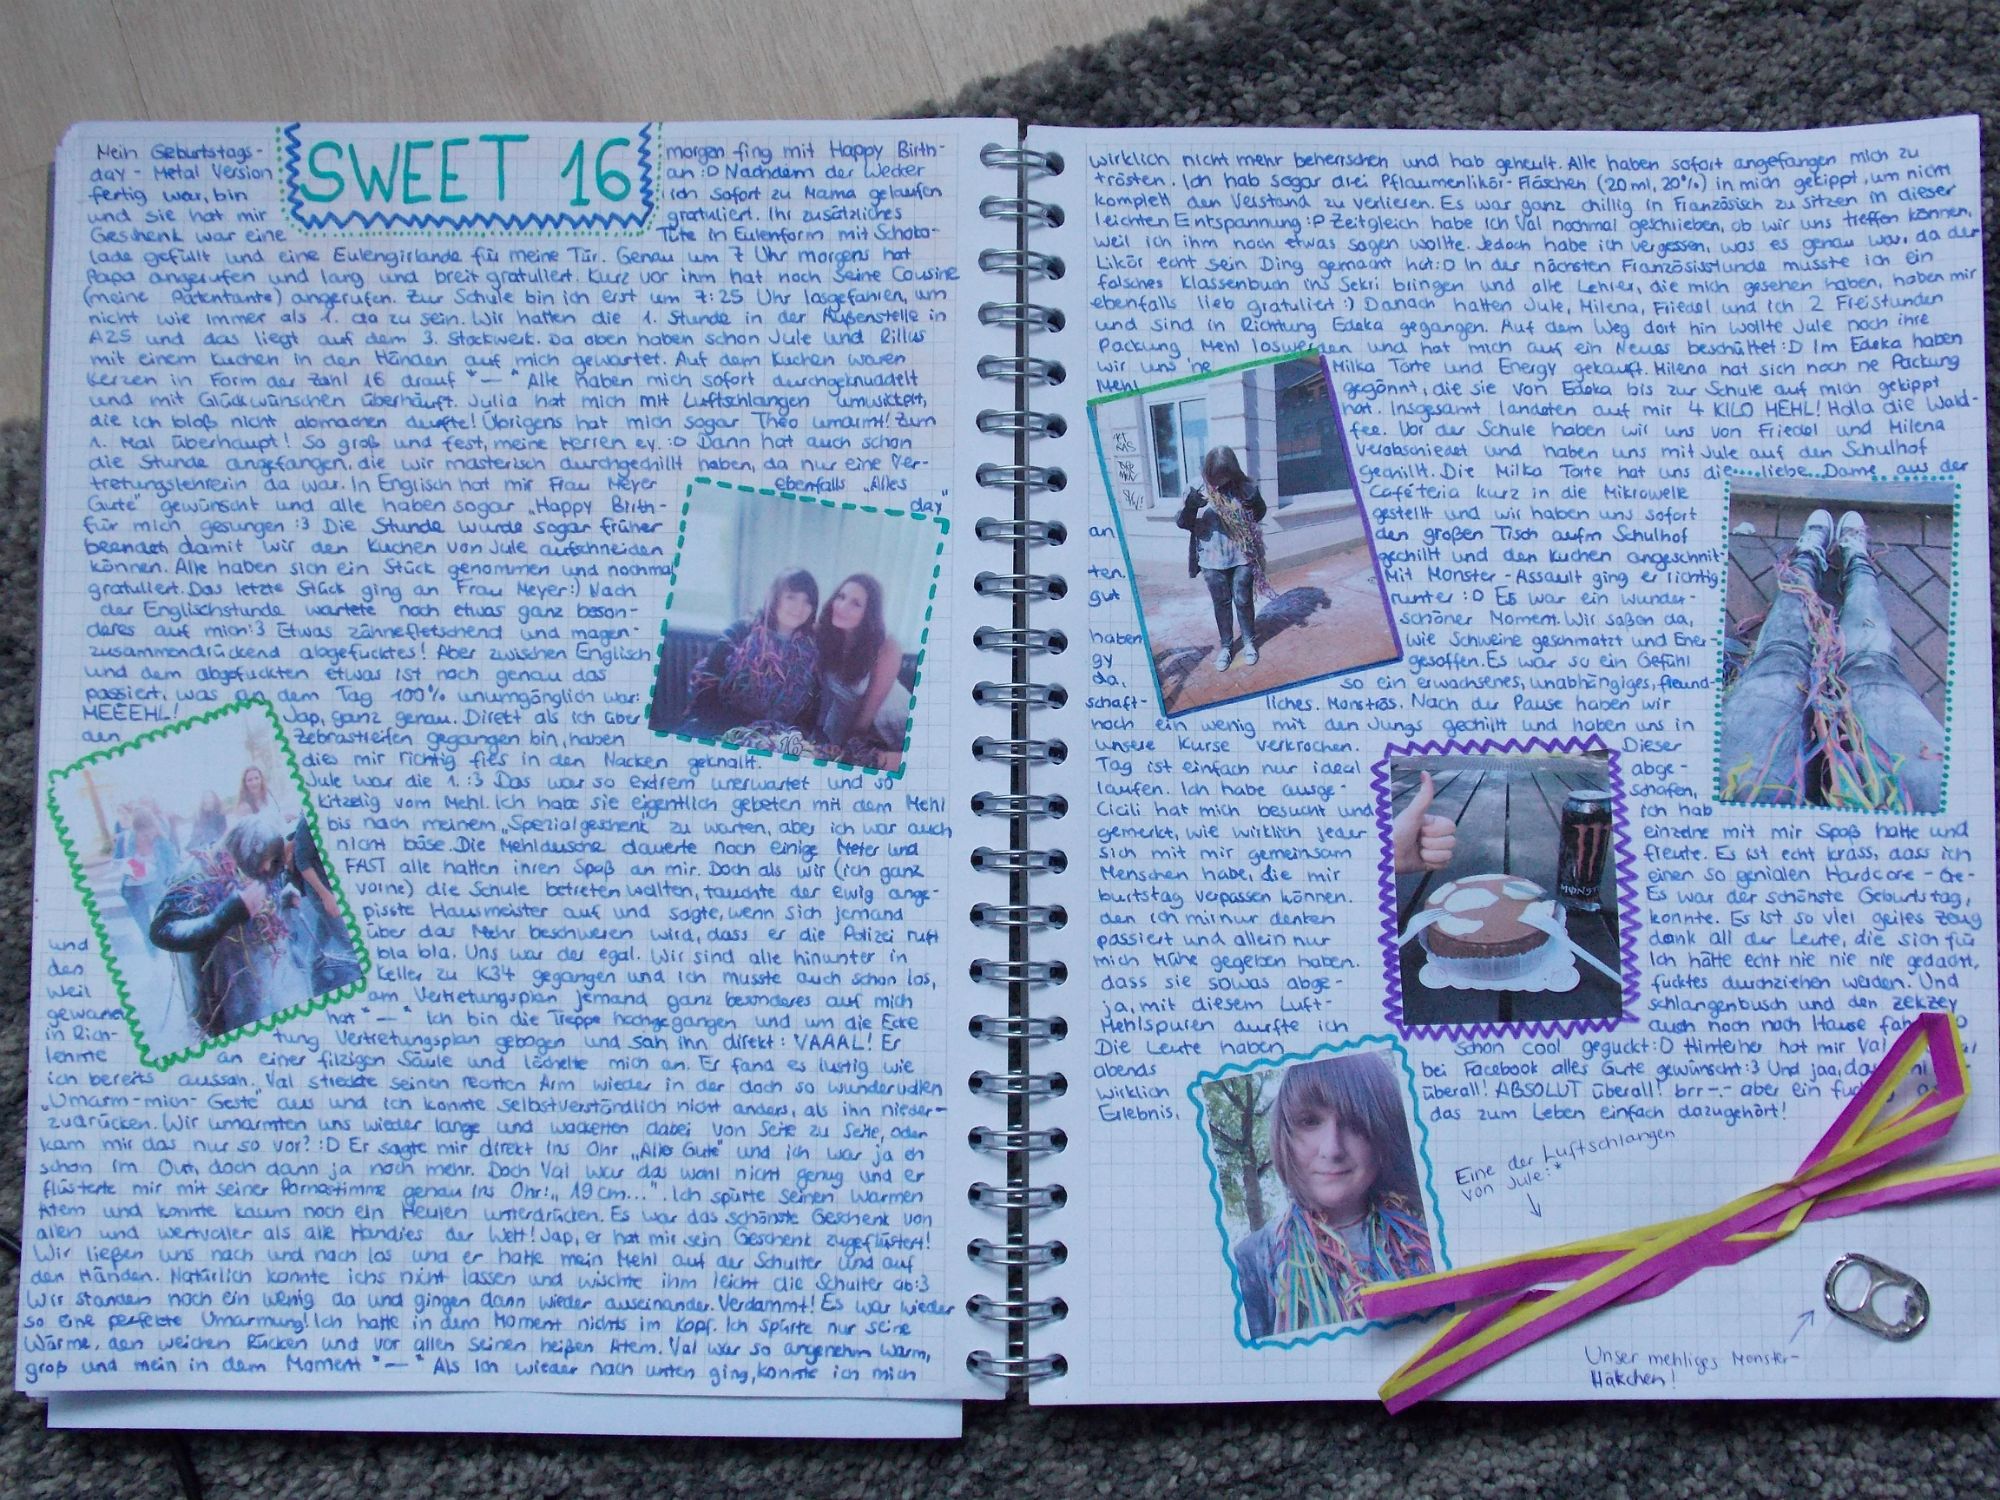 SWEET 16
Mein Geburtstags- morgen fing mit Happy Birth-
day - Metal Version an :D Nachdem der Wecker
fertig war, bin ich sofort zu Mama gelaufen
und sie hat mir gratuliert. Ihr zusätzliches
Geschenk war eine Tüte in Eulenform mit Schoko-
lade gefüllt und eine Eulengirlande für meine Tür. Genau um 7 Uhr morgens hat
Papa angerufen und lang und breit gratuliert. Kurz vor ihm hat noch seine Cousine
(meine Patentante) angerufen. Zur Schule bin ich erst um 7:25 Uhr losgefahren, um
nicht wie immer als 1. da zu sein. Wir hatten die 1. Stunde in der Außenstelle in
A25 und das liegt auf dem 3. Stockwerk. Da oben haben schon Jule und Rillus
mit einem Kuchen in den Händen auf mich gewartet. Auf dem Kuchen waren
Kerzen in Form der Zahl 16 drauf *-* Alle haben mich sofort durchgeknuddelt
und mit Glückwünschen überhäuft. Julia hat mich mit Luftschlangen umwickelt,
die ich bloß nicht abmachen durfte! Übrigens hat mich sogar Theo umarmt! Zum
1. Mal überhaupt! So groß und fest, meine Herren ey. :D Dann hat auch schon
die Stunde angefangen, die wir masterisch durchgechillt haben, da nur eine Ver-
tretungslehrerin da war. In Englisch hat mir Frau Meyer ebenfalls „Alles
Gute" gewünscht und alle haben sogar „Happy Birth- day"
für mich gesungen :3 Die Stunde wurde sogar früher
beendet, damit wir den Kuchen von Jule aufschneiden
können. Alle haben sich ein Stück genommen und nochmal
gratuliert. Das letzte Stück ging an Frau Meyer :) Nach
der Englischstunde wartete noch etwas ganz beson-
deres auf mich :3 Etwas zähnefletschend und magen-
zusammendrückend abgefucktes! Aber zwischen Englisch
und dem abgefuckten etwas ist noch genau das
passiert, was an dem Tag 100% unumgänglich war:
MEEEHL! Jap, ganz genau. Direkt als ich über
den Zebrastreifen gegangen bin, haben
dies mir richtig fies in den Nacken geknallt.
Jule war die 1. :3 Das war so extrem unerwartet und so
kitzelig vom Mehl. Ich habe sie eigentlich gebeten mit dem Mehl
bis nach meinem „Spezialgeschenk" zu warten, aber ich war auch
nicht böse. Die Mehldusche dauerte noch einige Meter und
FAST alle hatten ihren Spaß an mir. Doch als wir (ich ganz
vorne) die Schule betreten wollten, tauchte der ewig ange-
pisste Hausmeister auf und sagte, wenn sich jemand
über das Mehr beschweren wird, dass er die Polizei ruft
und bla bla. Uns war der egal. Wir sind alle hinunter in
den Keller zu K34 gegangen und ich musste auch schon los,
weil am Vertretungsplan jemand ganz besonderes auf mich
gewartet hat *-* Ich bin die Treppe hochgegangen und um die Ecke
in Rich- tung Vertretungsplan gebogen und sah ihn direkt: VAAAL! Er
lehnte an einer filzigen Säule und lächelte mich an. Er fand es lustig wie
ich bereits aussah. Val streckte seinen rechten Arm wieder in der doch so wundervollen
„Umarm-mich-Geste" aus und ich konnte selbstverständlich nicht anders, als ihn nieder-
zudrücken. Wir umarmten uns wieder lange und wackerten dabei von Seite zu Seite, oder
kam mir das nur so vor? :D Er sagte mir direkt ins Ohr „Alles Gute" und ich war ja eh
schon im Out, doch dann ja noch mehr. Doch Val war das wohl nicht genug und er
flüsterte mir mit seiner Pornostimme genau ins Ohr: „19cm...". Ich spürte seinen warmen
Atem und konnte kaum noch ein Heulen unterdrücken. Es war das schönste Geschenk von
allen und wertvoller als alle Handies der Welt! Jap, er hat mir sein Geschenk zugeflüstert!
Wir ließen uns nach und nach los und er hatte mein Mehl auf der Schulter und auf
den Händen. Natürlich konnte ichs nicht lassen und wischte ihm leicht die Schulter ab :3
Wir standen noch ein wenig da und gingen dann wieder auseinander. Verdammt! Es war wieder
so eine perfekte Umarmung! Ich hatte in dem Moment nichts im Kopf. Ich spürte nur seine
Wärme, den weichen Rücken und vor allen seinen heißen Atem. Val war so angenehm warm,
groß und mein in dem Moment *-* Als ich wieder nach unten ging, konnte ich mich
wirklich nicht mehr beherrschen und hab geheult. Alle haben sofort angefangen mich zu
trösten. Ich hab sogar drei Pflaumenlikör-Fläschen (20ml, 20%) in mich gekippt, um nicht
komplett den Verstand zu verlieren. Es war ganz chillig in Französisch zu sitzen in dieser
leichten Entspannung :P Zeitgleich habe ich Val nochmal geschrieben, ob wir uns treffen können,
weil ich ihm noch etwas sagen wollte. Jedoch habe ich vergessen, was es genau war, da der
Likör echt sein Ding gemacht hat :D In der nächsten Französisstunde musste ich ein
falsches Klassenbuch ins Sekri bringen und alle Lehrer, die mich gesehen haben, haben mir
ebenfalls lieb gratuliert :) Danach hatten Jule, Milena, Friedel und ich 2 Freistunden
und sind in Richtung Edeka gegangen. Auf dem Weg dort hin wollte Jule noch ihre
Packung Mehl loswerden und hat mich auf ein Neues beschüttet :D Im Edeka haben
wir uns 'ne Milka Torte und Energy gekauft. Milena hat sich noch ne Packung
Mehl gegönnt, die sie von Edeka bis zur Schule auf mich gekippt
hat. Insgesamt landeten auf mir 4 KILO MEHL! Holla die Wald-
fee. Vor der Schule haben wir uns von Friedel und Milena
verabschiedet und haben uns mit Jule auf den Schulhof
gechillt. Die Milka Torte hat uns die liebe Dame aus der
Caféteria kurz in die Mikrowelle
gestellt und wir haben uns sofort
an den großen Tisch aufm Schulhof
gechillt und den Kuchen angeschnit-
ten. Mit Monster-Assault ging er richtig
gut runter :D Es war ein wunder-
schöner Moment. Wir saßen da,
haben wie Schweine geschmatzt und Ener-
gy gesoffen. Es war so ein Gefühl
da, so ein erwachsenes, unabhängiges, freund-
schaft- liches. Monströs. Nach der Pause haben wir
noch ein wenig mit den Jungs gechillt und haben uns in
unsere Kurse verkrochen. Dieser
Tag ist einfach nur ideal abge-
laufen. Ich habe ausge- schafen,
Cicili hat mich besucht und ich hab
gemerkt, wie wirklich jeder einzelne mit mir Spaß hatte und
sich mit mir gemeinsam freute. Es ist echt krass, dass ich
Menschen habe, die mir einen so genialen Hardcore-Ge-
burtstag verpassen können. Es war der schönste Geburtstag,
den ich mir nur denken konnte. Es ist so viel geiles Zeug
passiert und allein nur dank all der Leute, die sich für
mich Mühe gegeben haben. Ich hätte echt nie nie nie gedacht,
dass sie sowas abge- fucktes durchziehen werden. Und
ja, mit diesem Luft- schlangenbusch und den
Mehlspuren durfte ich auch noch nach Hause
Die Leute haben schon cool geguckt :D Hinterher hat mir Val
abends bei Facebook alles Gute gewünscht :3 Und jaa,
wirklich überall! ABSOLUT überall! brr -.- aber ein
Erlebnis, das zum Leben einfach dazugehört!
Eine der Luftschlangen
von Jule :*
Unser mehliges Monster-
Häkchen!
MONSTER
16